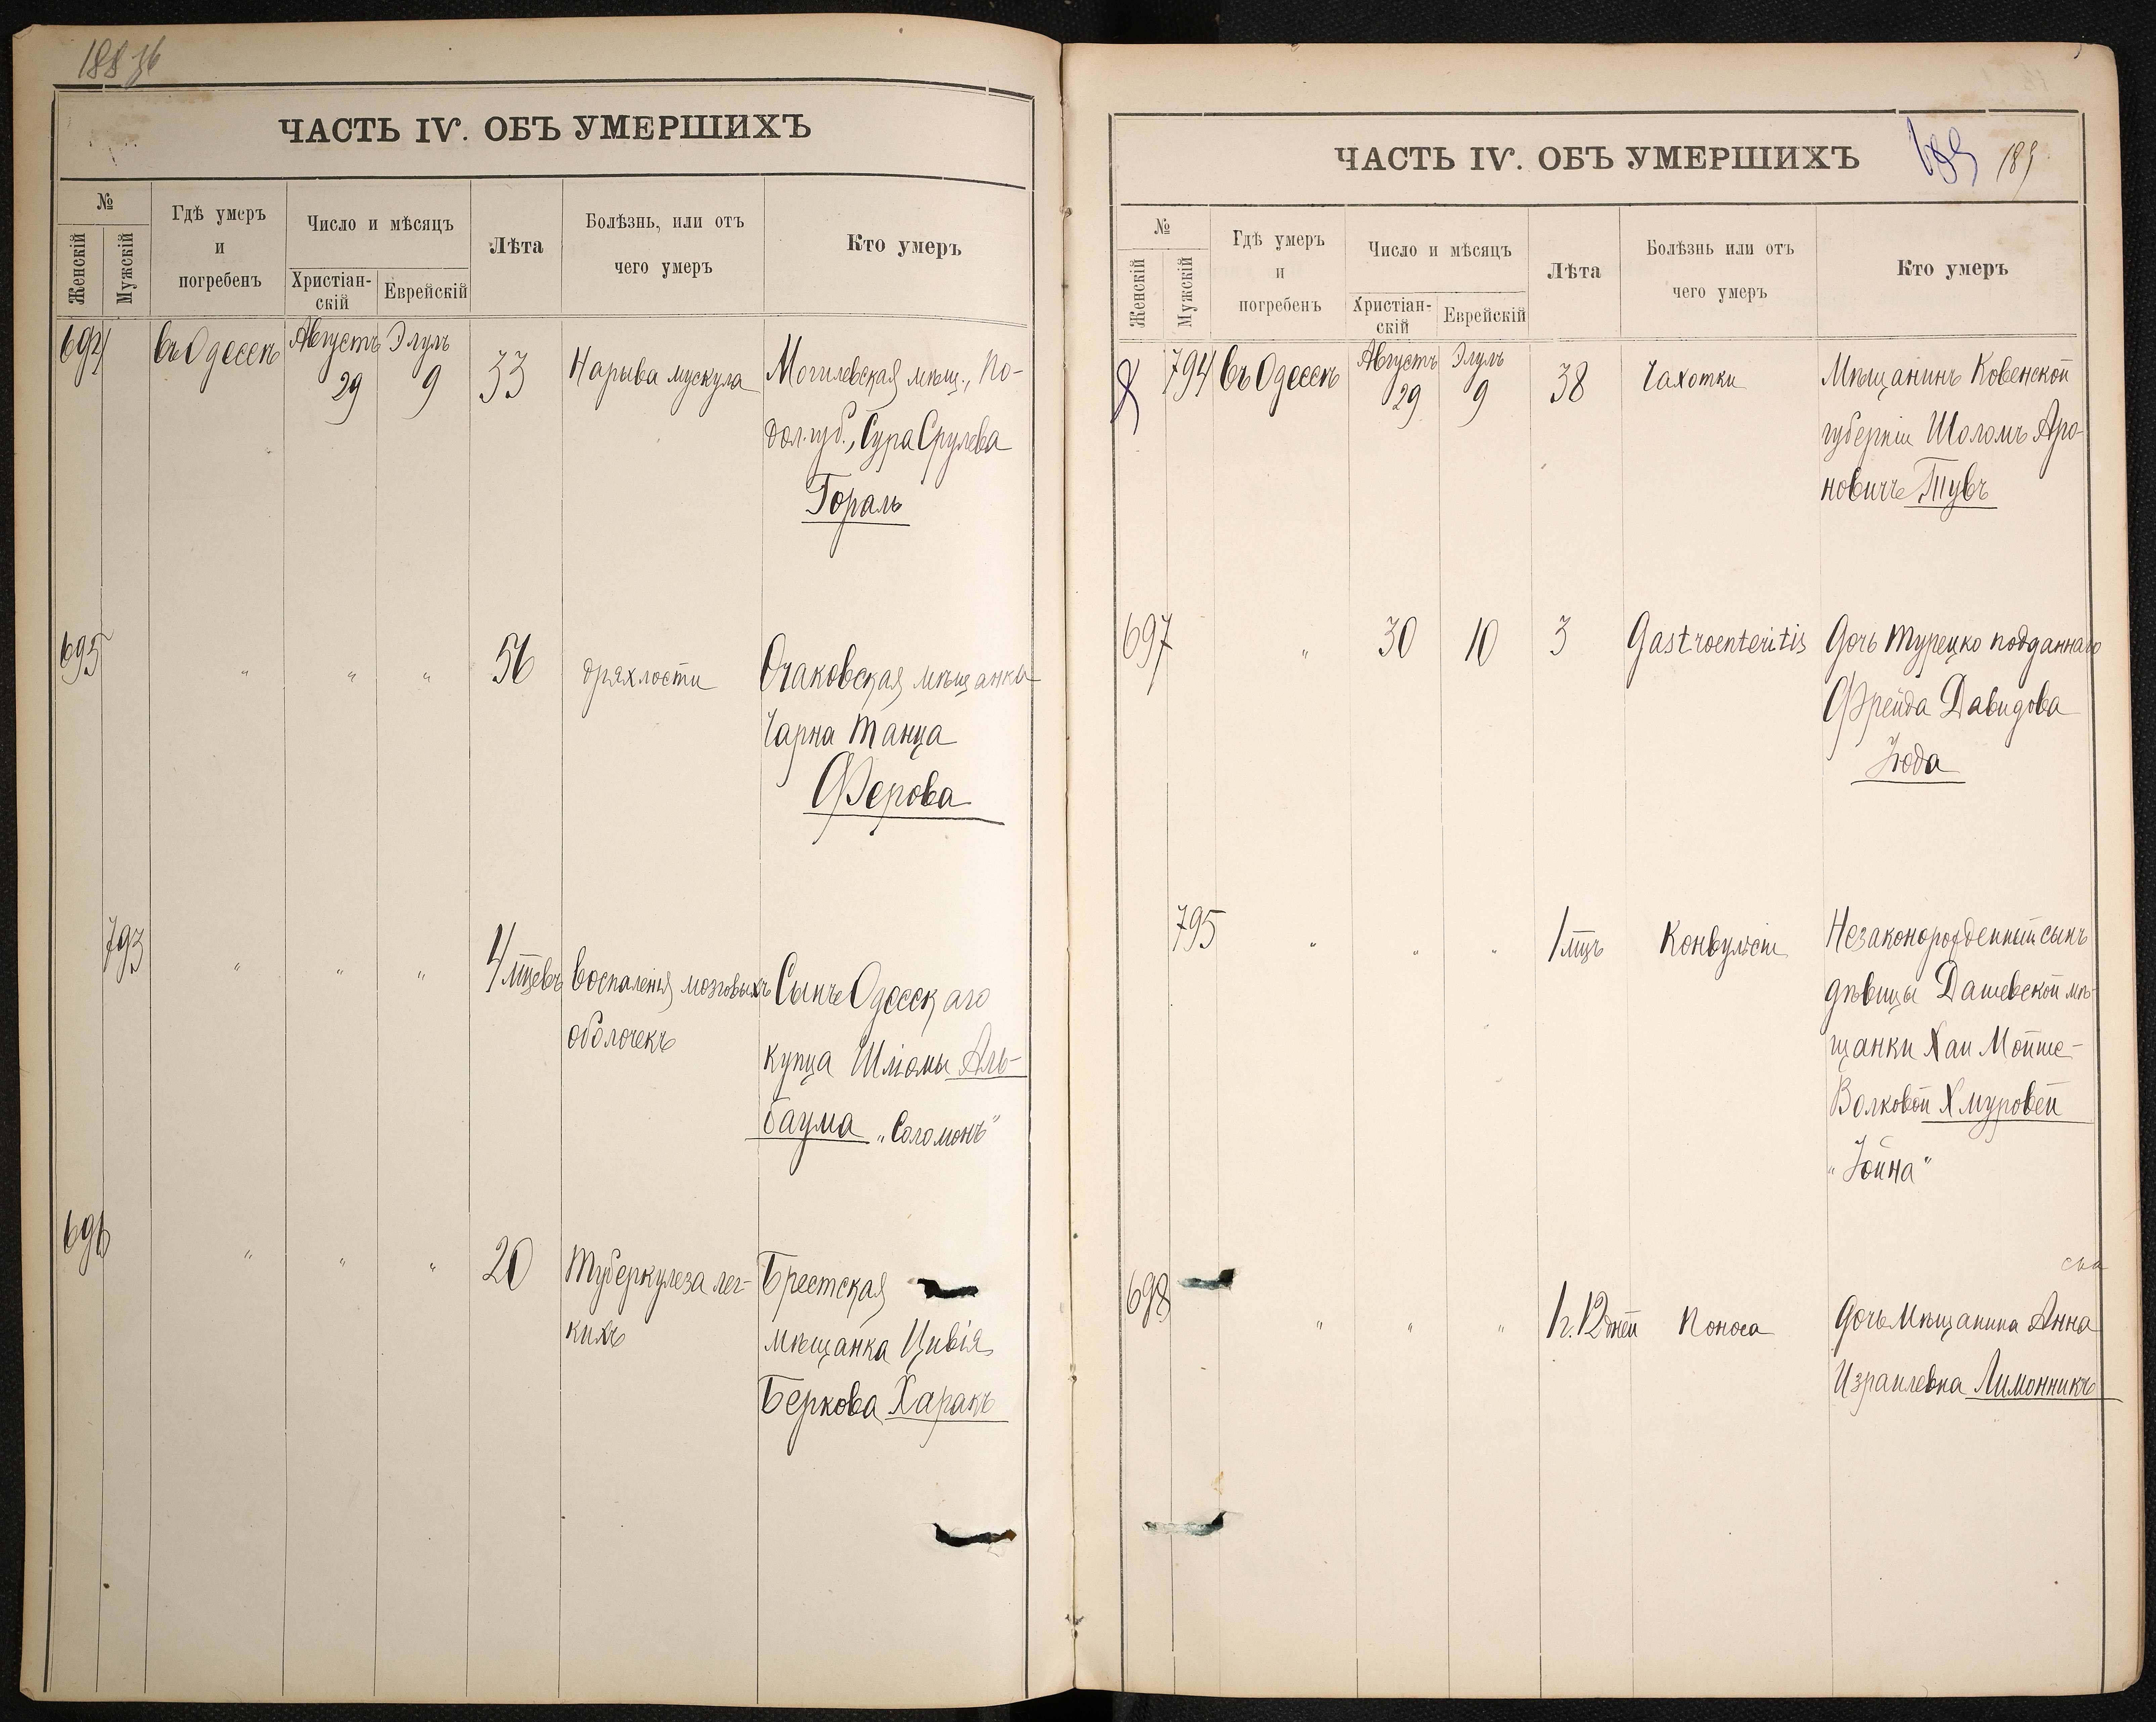 188 об
ЧАСТЬ IV. ОБЪ УМЕРШИХЪ
№
Женскій
Мужскій
Гдѣ умеръ
и
погребенъ
Число и мѣсяцъ
Христіан-
скій
Еврейскій
Лѣта
Болѣзнь, или отъ
чего умеръ
Кто умеръ
694 въ Одессѣ Августъ 29 Элулъ 9 33 Нарыва мускула Могилевская мѣщ., По-
дол. губ., Сура Срулева
Гораль
695 " " " 56 дряхлости Очаковская мѣщанка
Чарна Танца
Ферова
793 " " " 4 мѣсцевъ Воспаленія мозговыхъ Сынъ Одесскаго
оболочекъ купца Шліомы Аль-
баума „Соломонъ"
696 " " " 20 Туберкулеза лег- Брестская
кихъ мѣщанка Цивія
Беркова Харакъ
ЧАСТЬ IV. ОБЪ УМЕРШИХЪ
189 189
№
Женскій
Мужскій
Гдѣ умеръ
и
погребенъ
Число и мѣсяцъ
Христіан-
скій
Еврейскій
Лѣта
Болѣзнь или отъ
чего умеръ
Кто умеръ
794 въ Одессѣ Августъ 29 Элулъ 9 38 Чахотки Мѣщанинъ Ковенской
губерніи Шоломъ Аро-
новичъ Тувъ
697 " 30 10 3 Gastroenteritis Дочь Турецко подданнаго
Фрейда Давидова
Іода
795 " " " 1 мцъ Конвульсіи Незаконорожденный сынъ
дѣвицы Дашевской мѣ-
щанки Хаи Мойше-
Волковой Хмуровей
„Іойна"
698 " " " 1 г. 12 дней Поноса Дочь Мѣщанина Анна
Израилевна Лимонникъ